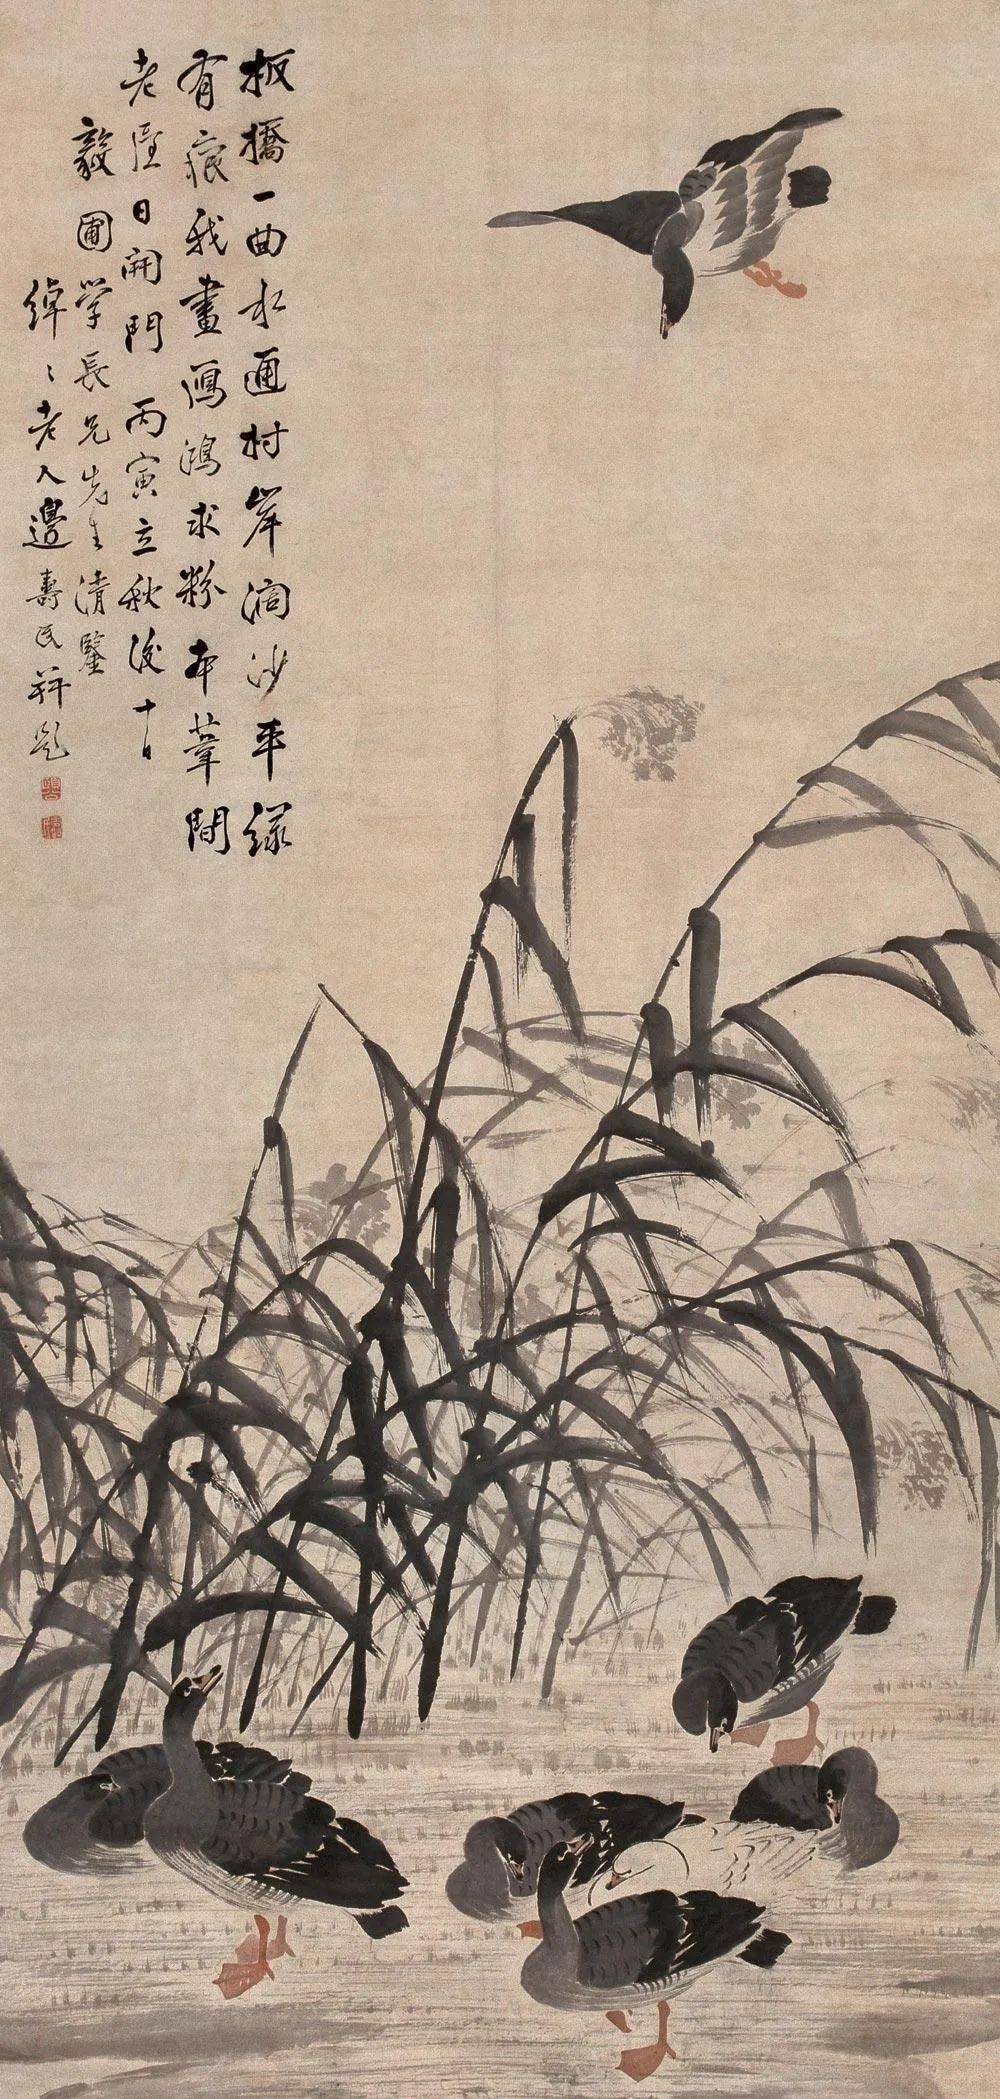 板橋一曲水通村岸濶沙平綠
有痕我畫鴈鴻求粉本葦間
老屋日開門丙寅立秋後十日
毅圃学長兄先生清鑒
綽〻老人邊壽民并題